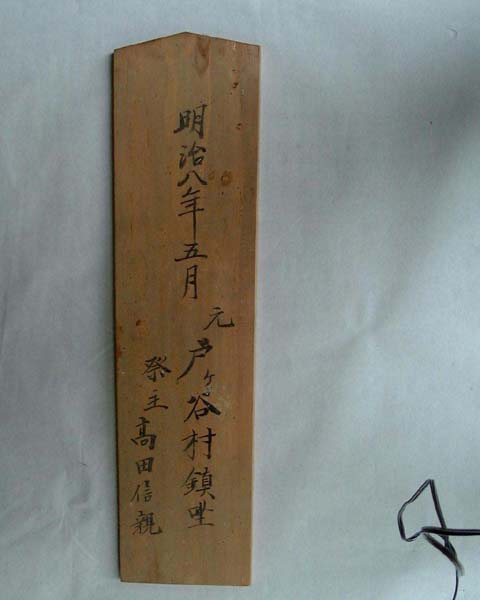 明治八年五月
元戸ヶ谷村鎮坐
祭主高田信親